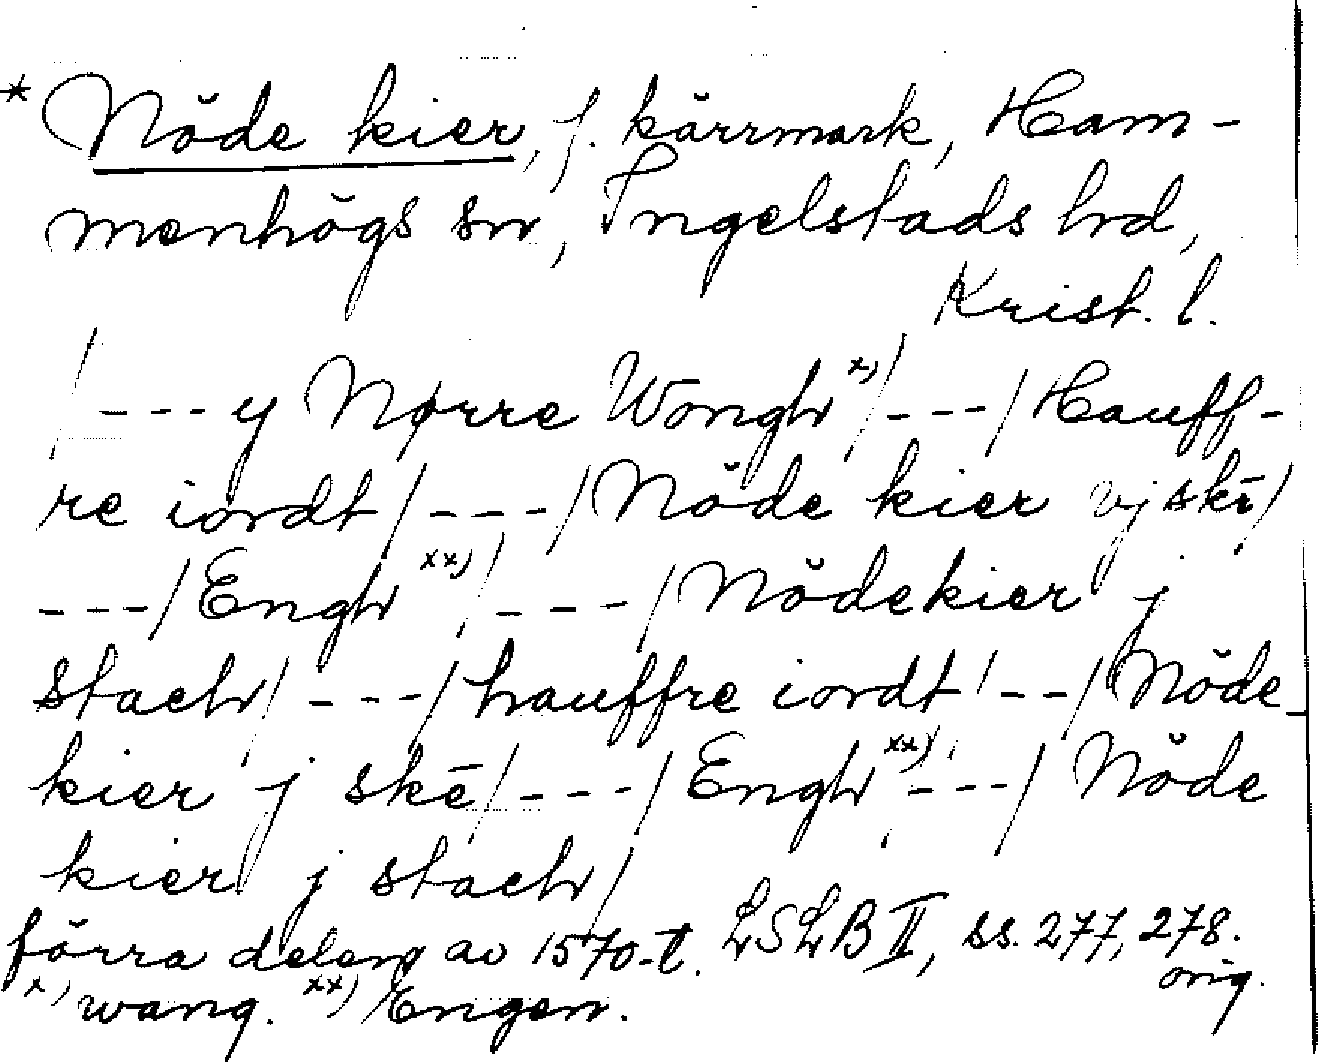 * Nöde kier, f. kärrmark, Ham-
menhögs sn, Ingelstads hd,
Krist. l.
/---y Nørre Wongh x)/---/Hauff-
re iordt/---/Nöde kier vj skē/
---/Engh xx)/---/Nödekier j
stach/---/hauffre iordt/--/Nöde
kier j skē/---/Engh xx)/---/Nöde
kier j stach/
förra delen av 1570-t. LSLB II, ss. 277, 278.
orig.
x) wang. xx) Engen.